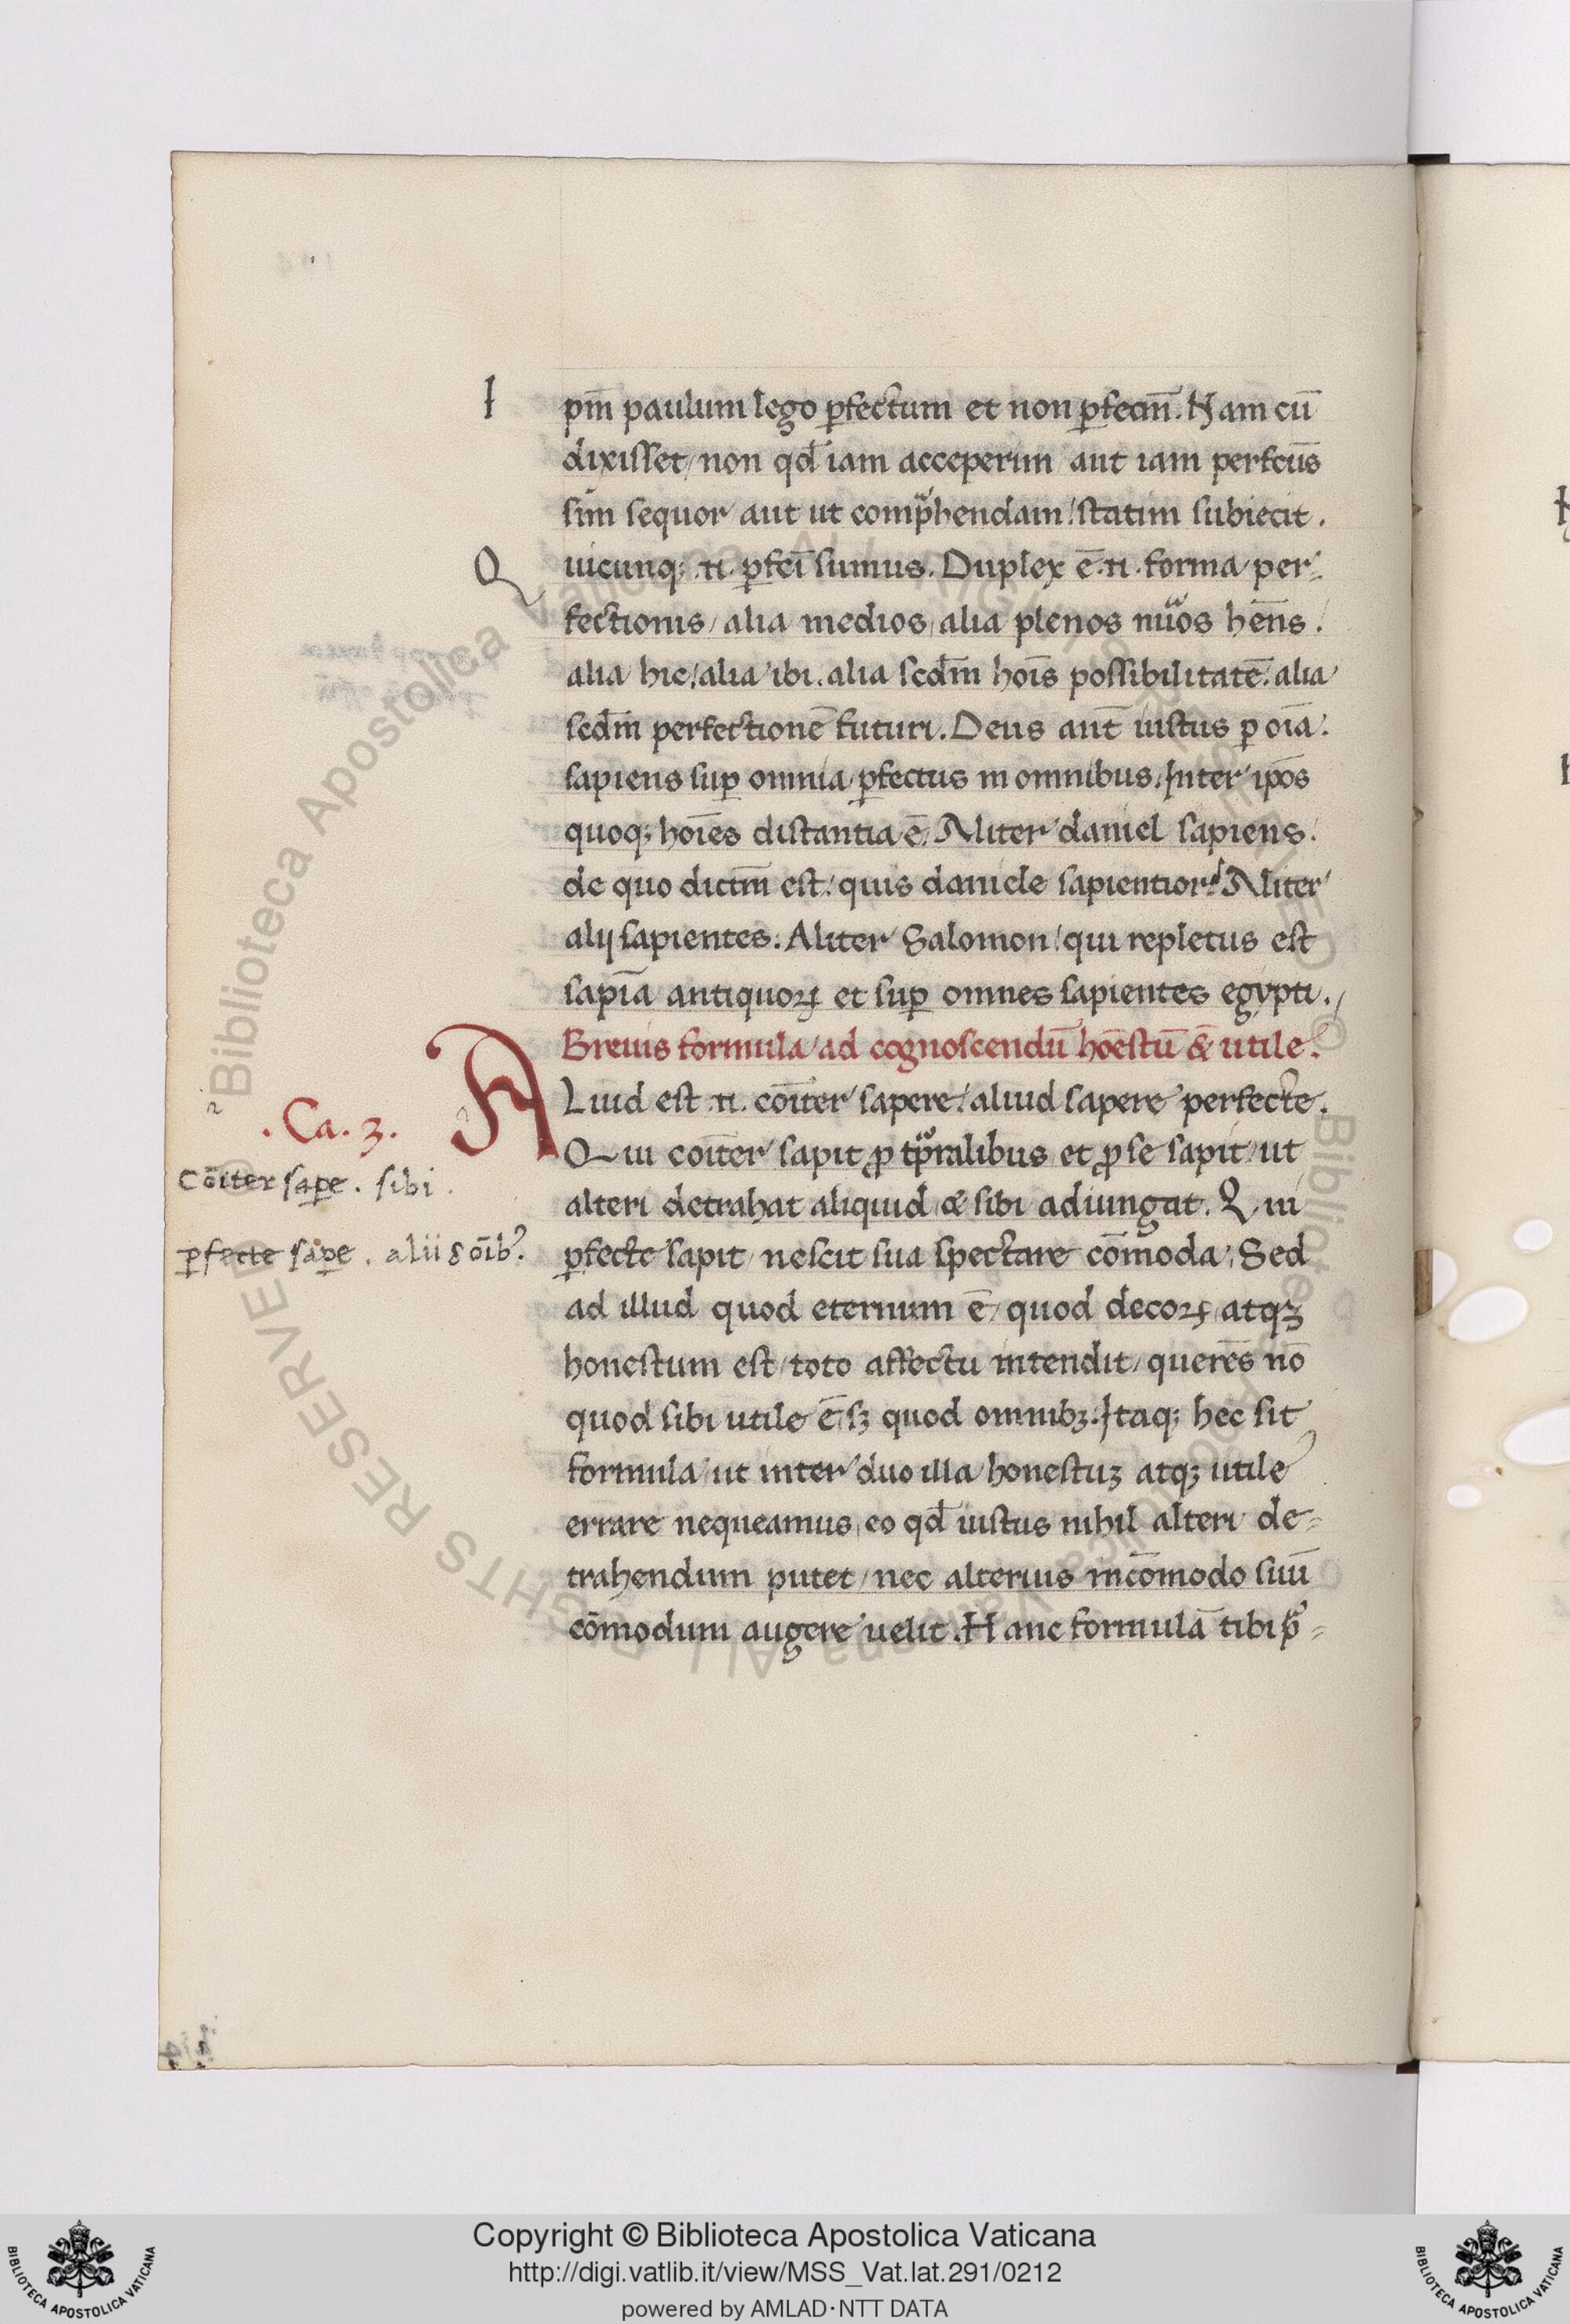 Ipm̄ paulum lego ꝑfectum et non ꝑfectm̄. Nam cū
dixisset / non qd̄ iam acceperim aut iam perfct̄us
sim sequor aut ut compͣhendam / statim subiecit.
Quicunq; .n. ꝑfct̄i sumus. Duplex ē .n. forma per⸗
fectionis / alia medios / alia plenos nuͦos hen̄s.
alia hic / alia ibi. alia scd̄m hoīs possibilitatē. alia
scd̄m perfectionē futuri. Deus aut̄ iustus ꝑ oīa.
sapiens suꝑ omnia / ꝑfectus in omnibus. Inter ip̄os
quoq; hoīes distantia ē. Aliter daniel sapiens.
de quo dictm̄ est. quis daniele sapientior? Aliter
alij sapientes. Aliter Salomon / qui repletus est
sapīa antiquoꝝ et suꝑ omnes sapientes egypti.
Breuis formula ad cognoscendū hoēstū & utile.
.Ca. 3.
ALiud est .n. coīter sapere / aliud sapere perfecte.
Qui coīter sapit ꝓ tp̄ralibus et ꝓ se sapit ut
cōiter saꝑe . sibi .
alteri detrahat aliquid & sibi adiungat. Qui
ꝑfecte saꝑe . alii & oīb⁹.
ꝑfecte sapit / nescit sua spectare cōmoda. Sed
ad illud quod eternum ē / quod decoꝝ atqꝫ
honestum est / toto affectu intendit / querēs nō
quod sibi utile ē / sꝫ quod omnibꝫ. Itaq; hec sit
formula / ut inter duo illa honestuꝫ atqꝫ utile
errare nequeamus / eo qd̄ iustus nihil alteri de⸗
trahendum putet / nec alterius incōmodo suū
cōmodum augere uelit. Hanc formulā tibi p̄⸗
Copyright © Biblioteca Apostolica Vaticana
http://digi.vatlib.it/view/MSS_Vat.lat.291/0212
powered by AMLAD·NTT DATA